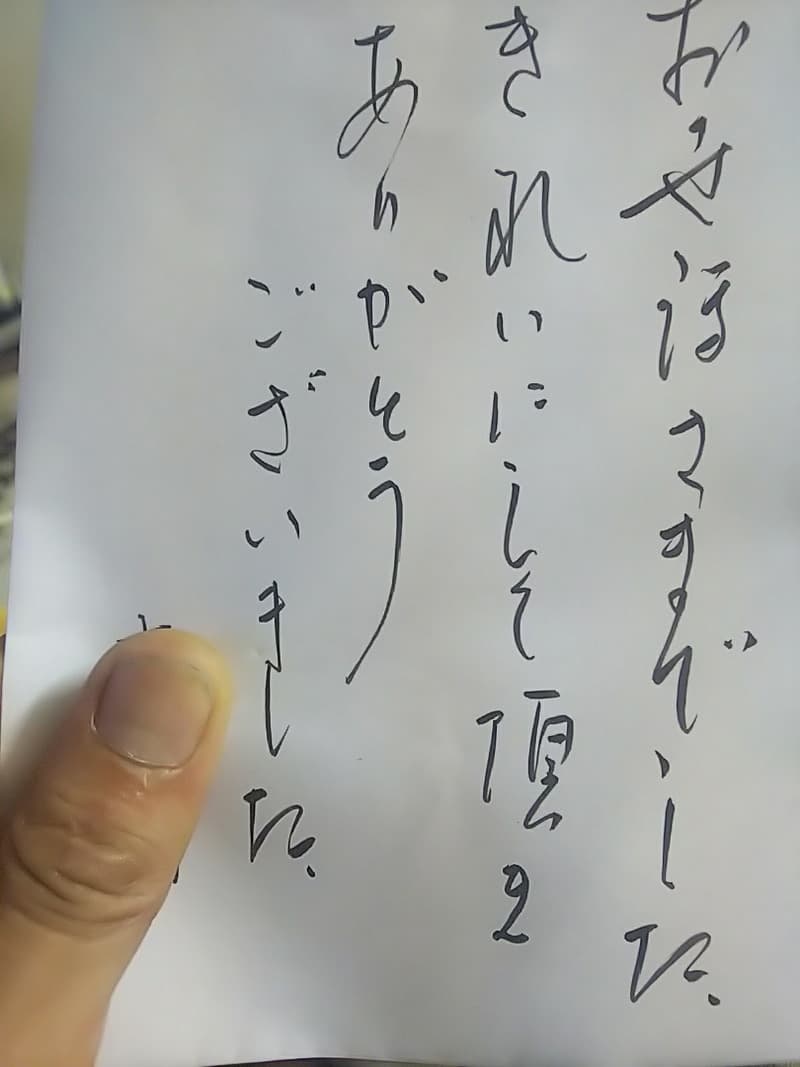 お世話さまでした、
きれいにして頂
ありがとう
ございました、